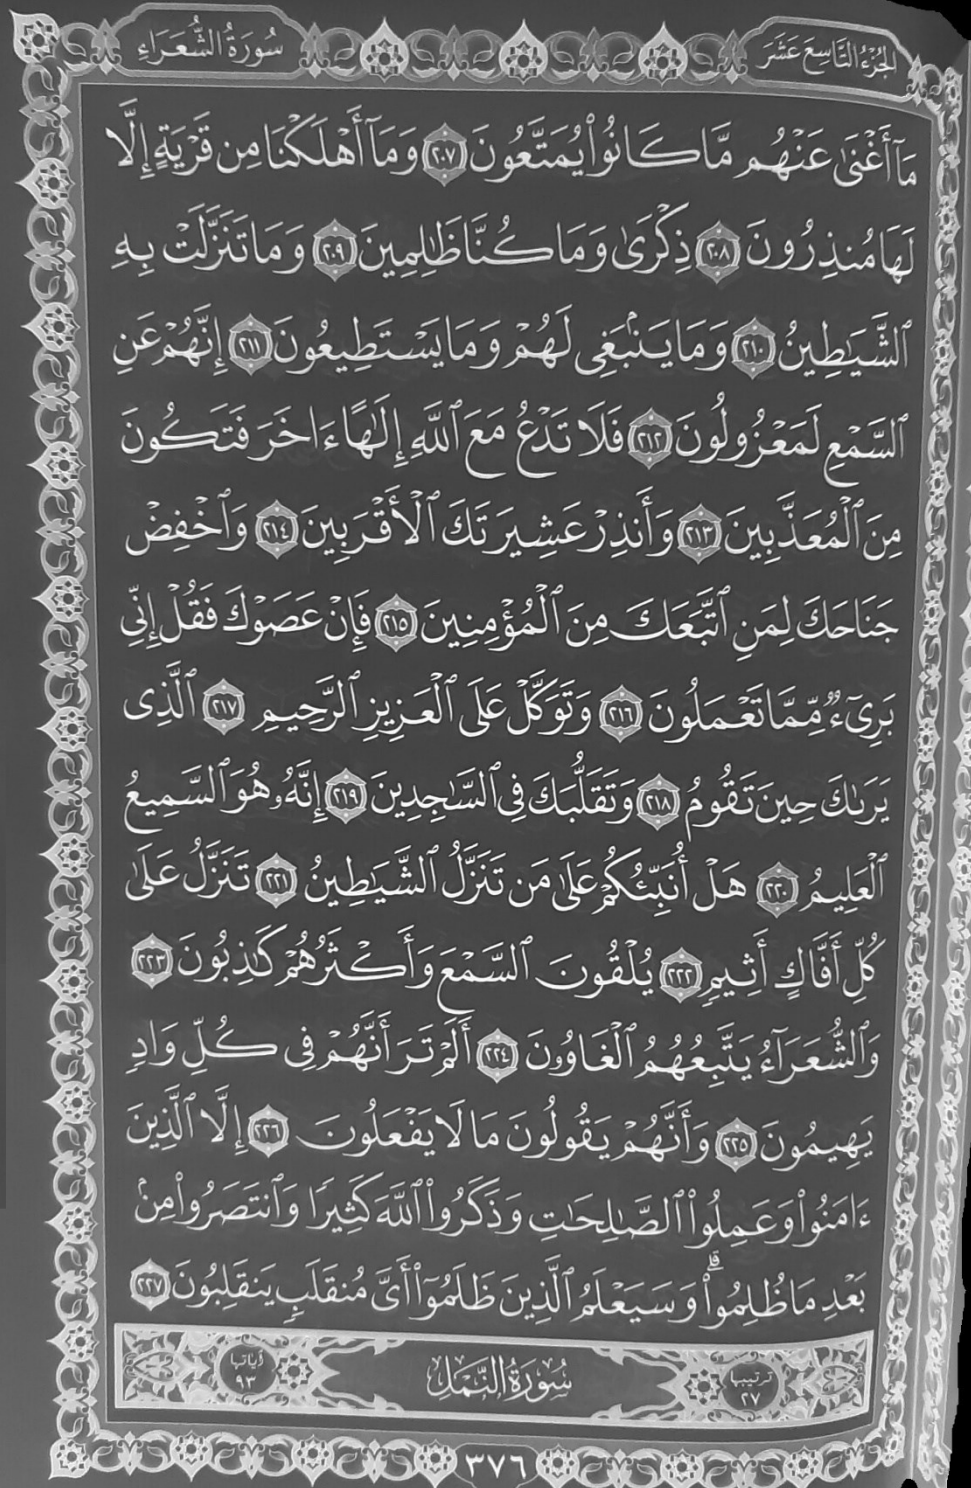 الجُزْءُ التَّاسِعَ عَشَرَ
سُورَةُ الشُّعَرَاءِ
مَآ أَغْنَىٰ عَنْهُم مَّا كَانُوا۟ يُمَتَّعُونَ ٢٠٧ وَمَآ أَهْلَكْنَا مِن قَرْيَةٍ إِلَّا
لَهَا مُنذِرُونَ ٢٠٨ ذِكْرَىٰ وَمَا كُنَّا ظَٰلِمِينَ ٢٠٩ وَمَا تَنَزَّلَتْ بِهِ
ٱلشَّيَٰطِينُ ٢١٠ وَمَا يَنۢبَغِى لَهُمْ وَمَا يَسْتَطِيعُونَ ٢١١ إِنَّهُمْ عَنِ
ٱلسَّمْعِ لَمَعْزُولُونَ ٢١٢ فَلَا تَدْعُ مَعَ ٱللَّهِ إِلَٰهًا ءَاخَرَ فَتَكُونَ
مِنَ ٱلْمُعَذَّبِينَ ٢١٣ وَأَنذِرْ عَشِيرَتَكَ ٱلْأَقْرَبِينَ ٢١٤ وَٱخْفِضْ
جَنَاحَكَ لِمَنِ ٱتَّبَعَكَ مِنَ ٱلْمُؤْمِنِينَ ٢١٥ فَإِنْ عَصَوْكَ فَقُلْ إِنِّى
بَرِىٓءٌ مِّمَّا تَعْمَلُونَ ٢١٦ وَتَوَكَّلْ عَلَى ٱلْعَزِيزِ ٱلرَّحِيمِ ٢١٧ ٱلَّذِى
يَرَىٰكَ حِينَ تَقُومُ ٢١٨ وَتَقَلُّبَكَ فِى ٱلسَّٰجِدِينَ ٢١٩ إِنَّهُۥ هُوَ ٱلسَّمِيعُ
ٱلْعَلِيمُ ٢٢٠ هَلْ أُنَبِّئُكُمْ عَلَىٰ مَن تَنَزَّلُ ٱلشَّيَٰطِينُ ٢٢١ تَنَزَّلُ عَلَىٰ
كُلِّ أَفَّاكٍ أَثِيمٍ ٢٢٢ يُلْقُونَ ٱلسَّمْعَ وَأَكْثَرُهُمْ كَٰذِبُونَ ٢٢٣
وَٱلشُّعَرَآءُ يَتَّبِعُهُمُ ٱلْغَاوُۥنَ ٢٢٤ أَلَمْ تَرَ أَنَّهُمْ فِى كُلِّ وَادٍ
يَهِيمُونَ ٢٢٥ وَأَنَّهُمْ يَقُولُونَ مَا لَا يَفْعَلُونَ ٢٢٦ إِلَّا ٱلَّذِينَ
ءَامَنُوا۟ وَعَمِلُوا۟ ٱلصَّٰلِحَٰتِ وَذَكَرُوا۟ ٱللَّهَ كَثِيرًا وَٱنتَصَرُوا۟ مِنۢ
بَعْدِ مَا ظُلِمُوا۟ ۗ وَسَيَعْلَمُ ٱلَّذِينَ ظَلَمُوٓا۟ أَىَّ مُنقَلَبٍ يَنقَلِبُونَ ٢٢٧
ترتيبها ٢٧ سُورَةُ النَّمْلِ آياتها ٩٣
٣٧٦